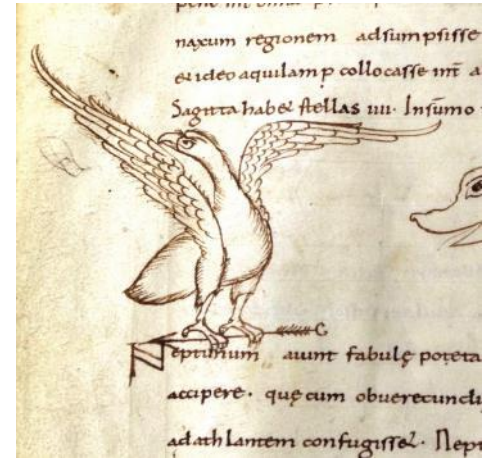 naxum regionem adsumpsisse
et ideo aquilam p collocasse int̄ a
Sagitta habet stellas iiii. Insūmo
Neptunum aiunt fabulę poteta
accipere. quę cum obuerecundi
ad athlantem confugisset. Nept